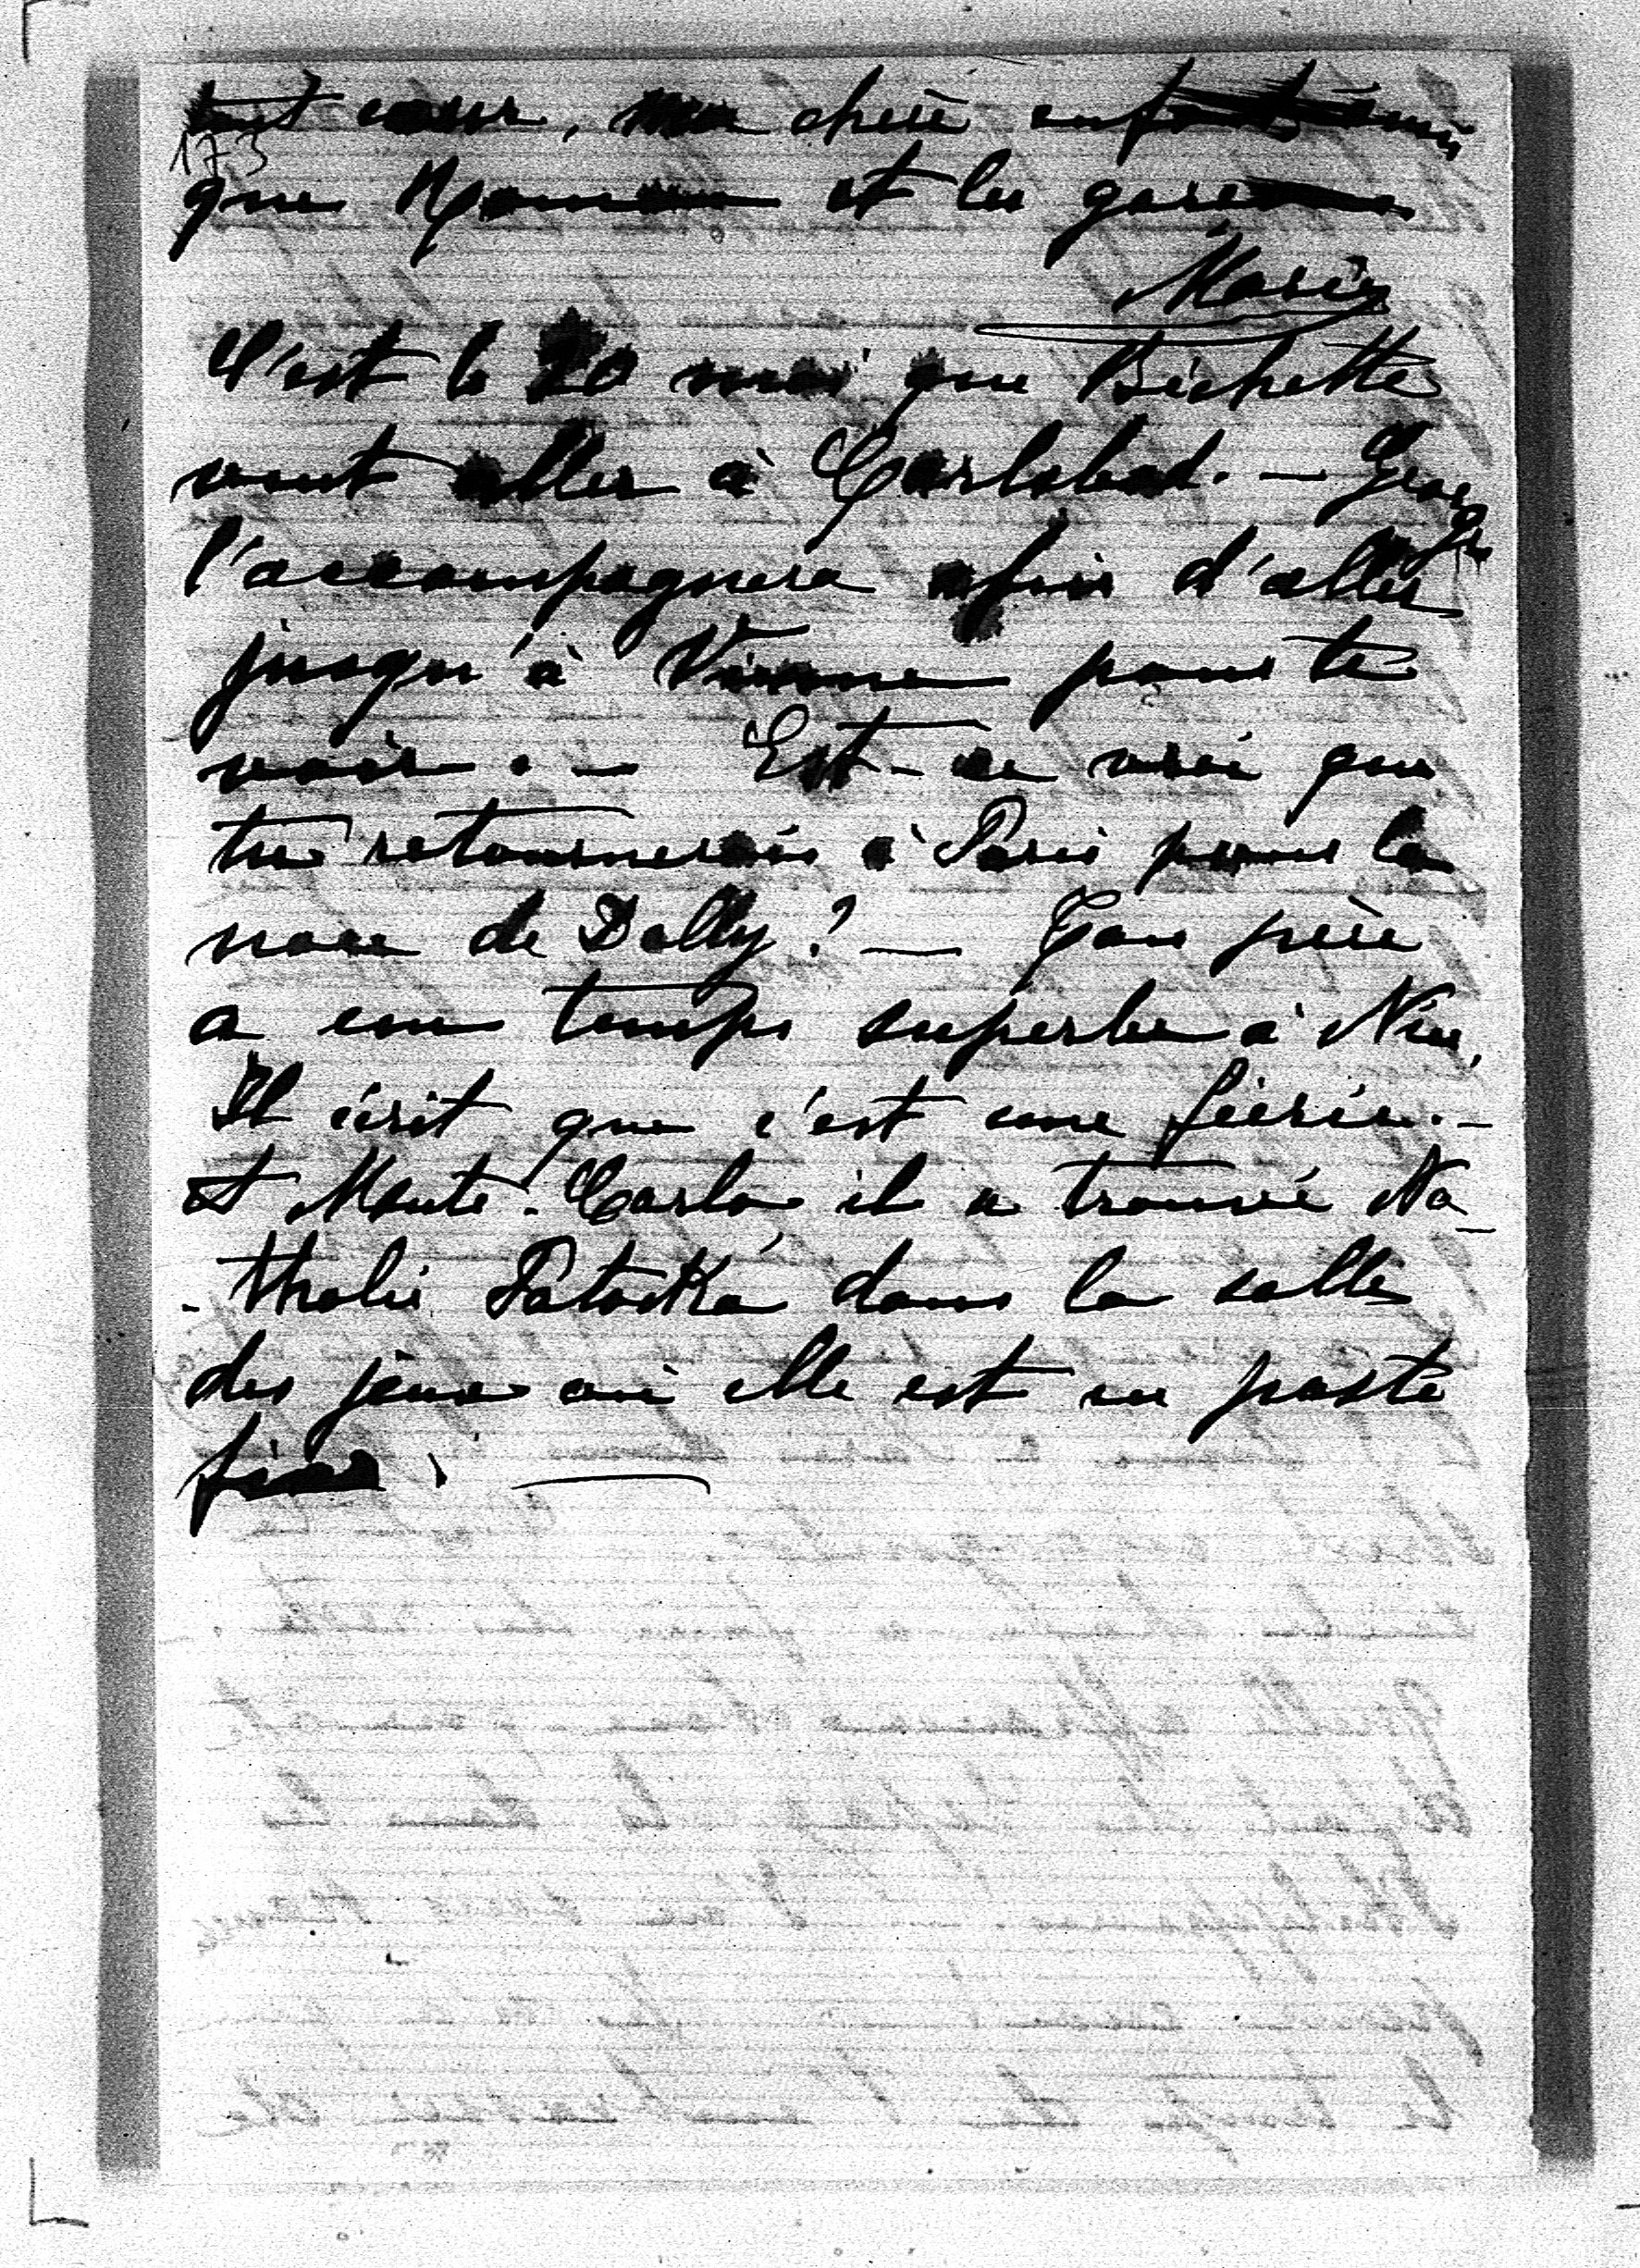 tout cœur, ma chère enfant ainsi
173
que Roman et les garçons
Marie
C'est le 20 mai que Bichette
veut aller à Carlsbad. — Georges
l'accompagnera afin d'aller
jusqu'à Vienne pour te
voir. — Est-ce vrai que
tu retournerais à Paris pour la
noce de Dolly? — Ton père
a eu un temps superbe à Nice,
Il écrit que c'est une féerie. —
et Monte-Carlo il a trouvé Na-
-thalie Patocka dans la salle
des jeux où elle est en poste
fixe. —